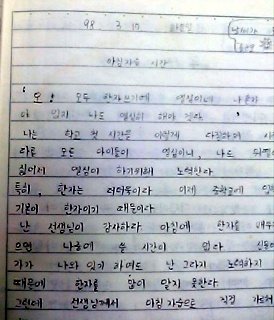 98. 3. 17 화요일 날씨가
아침자습 시간
"오! 모두 한자쓰기에 열심이네 나혼자
아 있지 나도 열심히 해야 겠다"
나는 학교 첫 시간을 이렇게 다짐하며
다른 모든 아이들이 열심이니, 나도 뒤떨
싫어서 열심히 하기위해 노력한다
특히, 한자는 더더욱이다 이제 중학교에
기본이 한자이기 때문이다
난 선생님이 감사하다 아침에 한자를 배우
으면 나중에 쓸 시간이 없다
기가 나와 있기 하여도 난 그다지 노력하지
때문에 한자를 많이 알지 못한다
그런데 선생님께서 아침 자습으로 직접